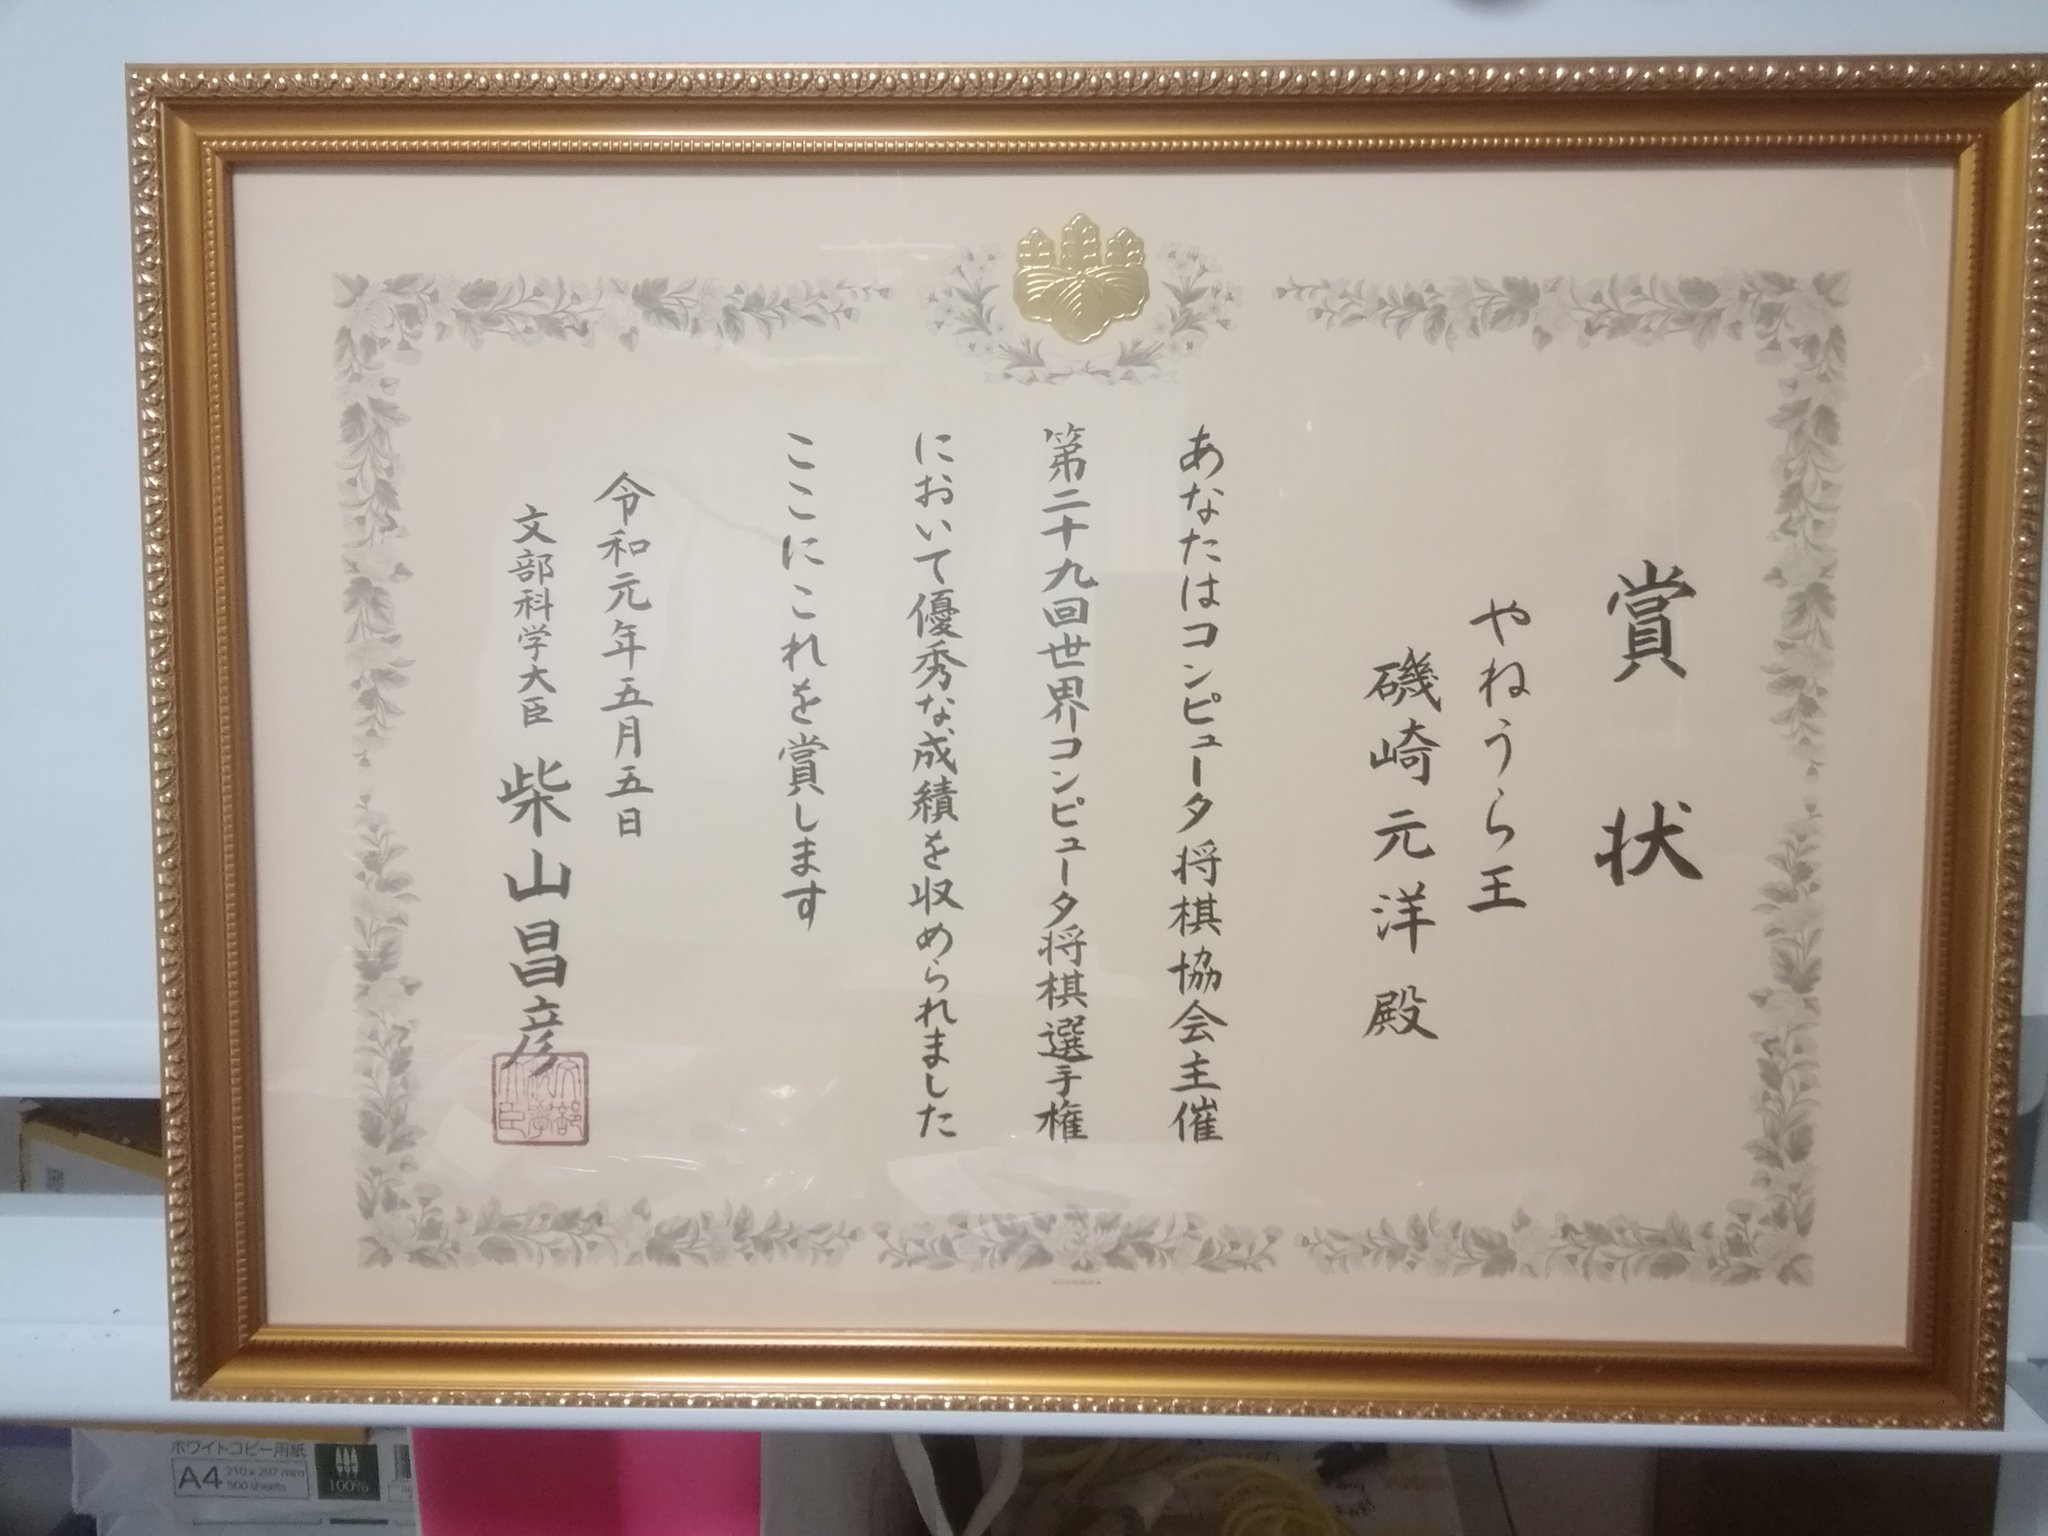 賞状
やねうら王
磯崎元洋殿
あなたはコンピュータ将棋協会主催
第二十九回世界コンピュータ将棋選手権
において優秀な成績を収められました
ここにこれを賞します
令和元年五月五日
文部科学大臣 柴山昌彦
ホワイトコピー用紙
A4
210×297mm
500 sheets
100%